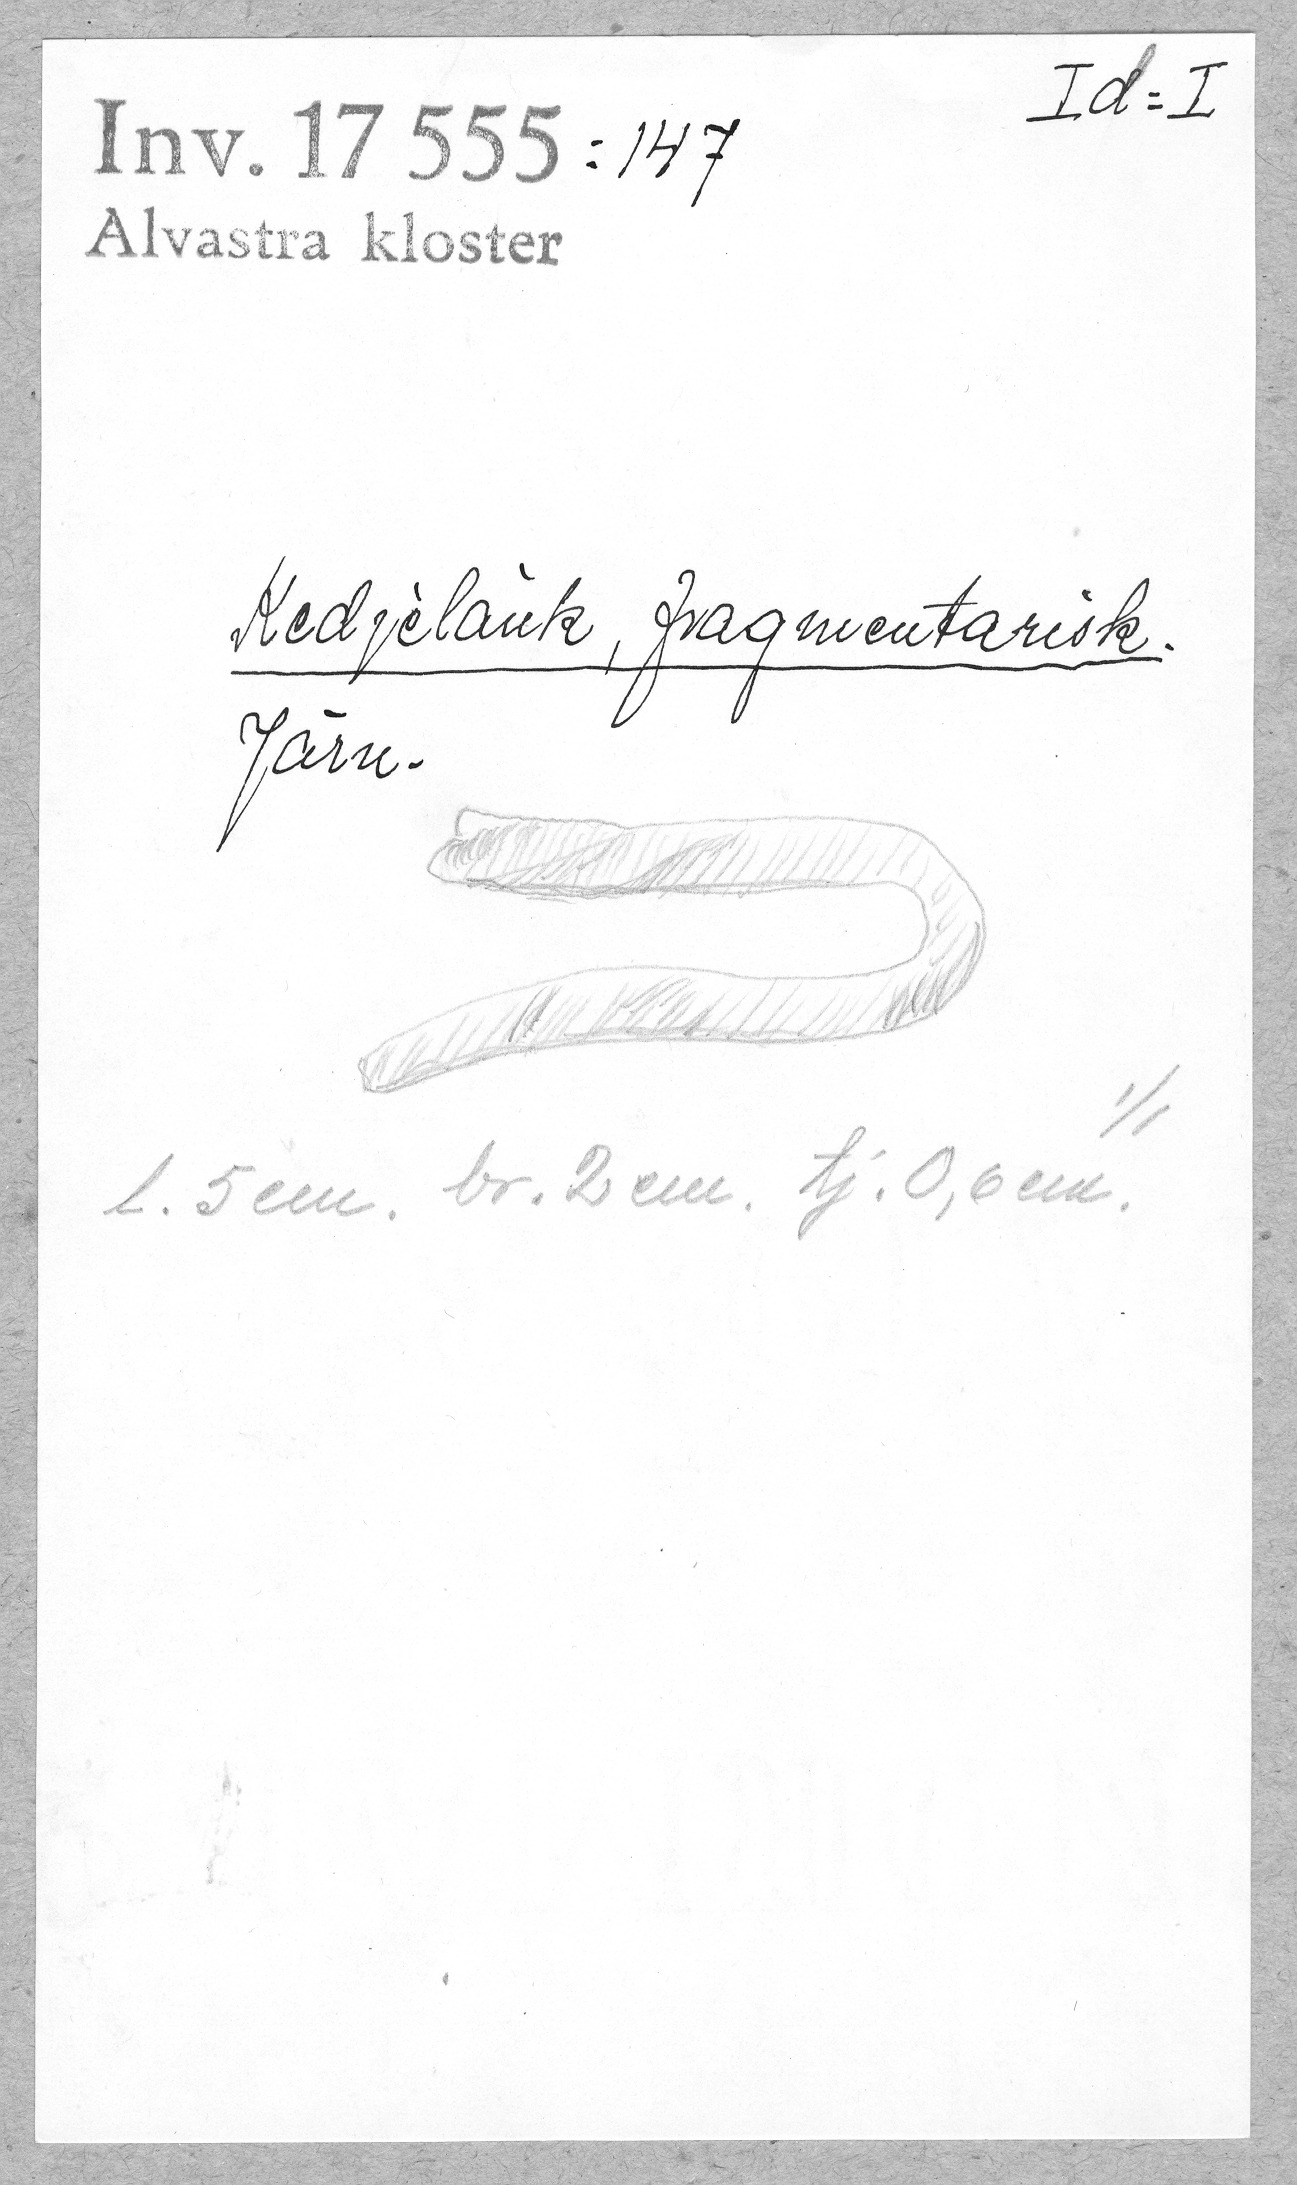 Id=I
Inv. 17 555 :147
Alvastra kloster
Kedjelänk, fragmentarisk.
Järn.
1/1
l. 5 cm. br. 2 cm. tj. 0,6 cm.